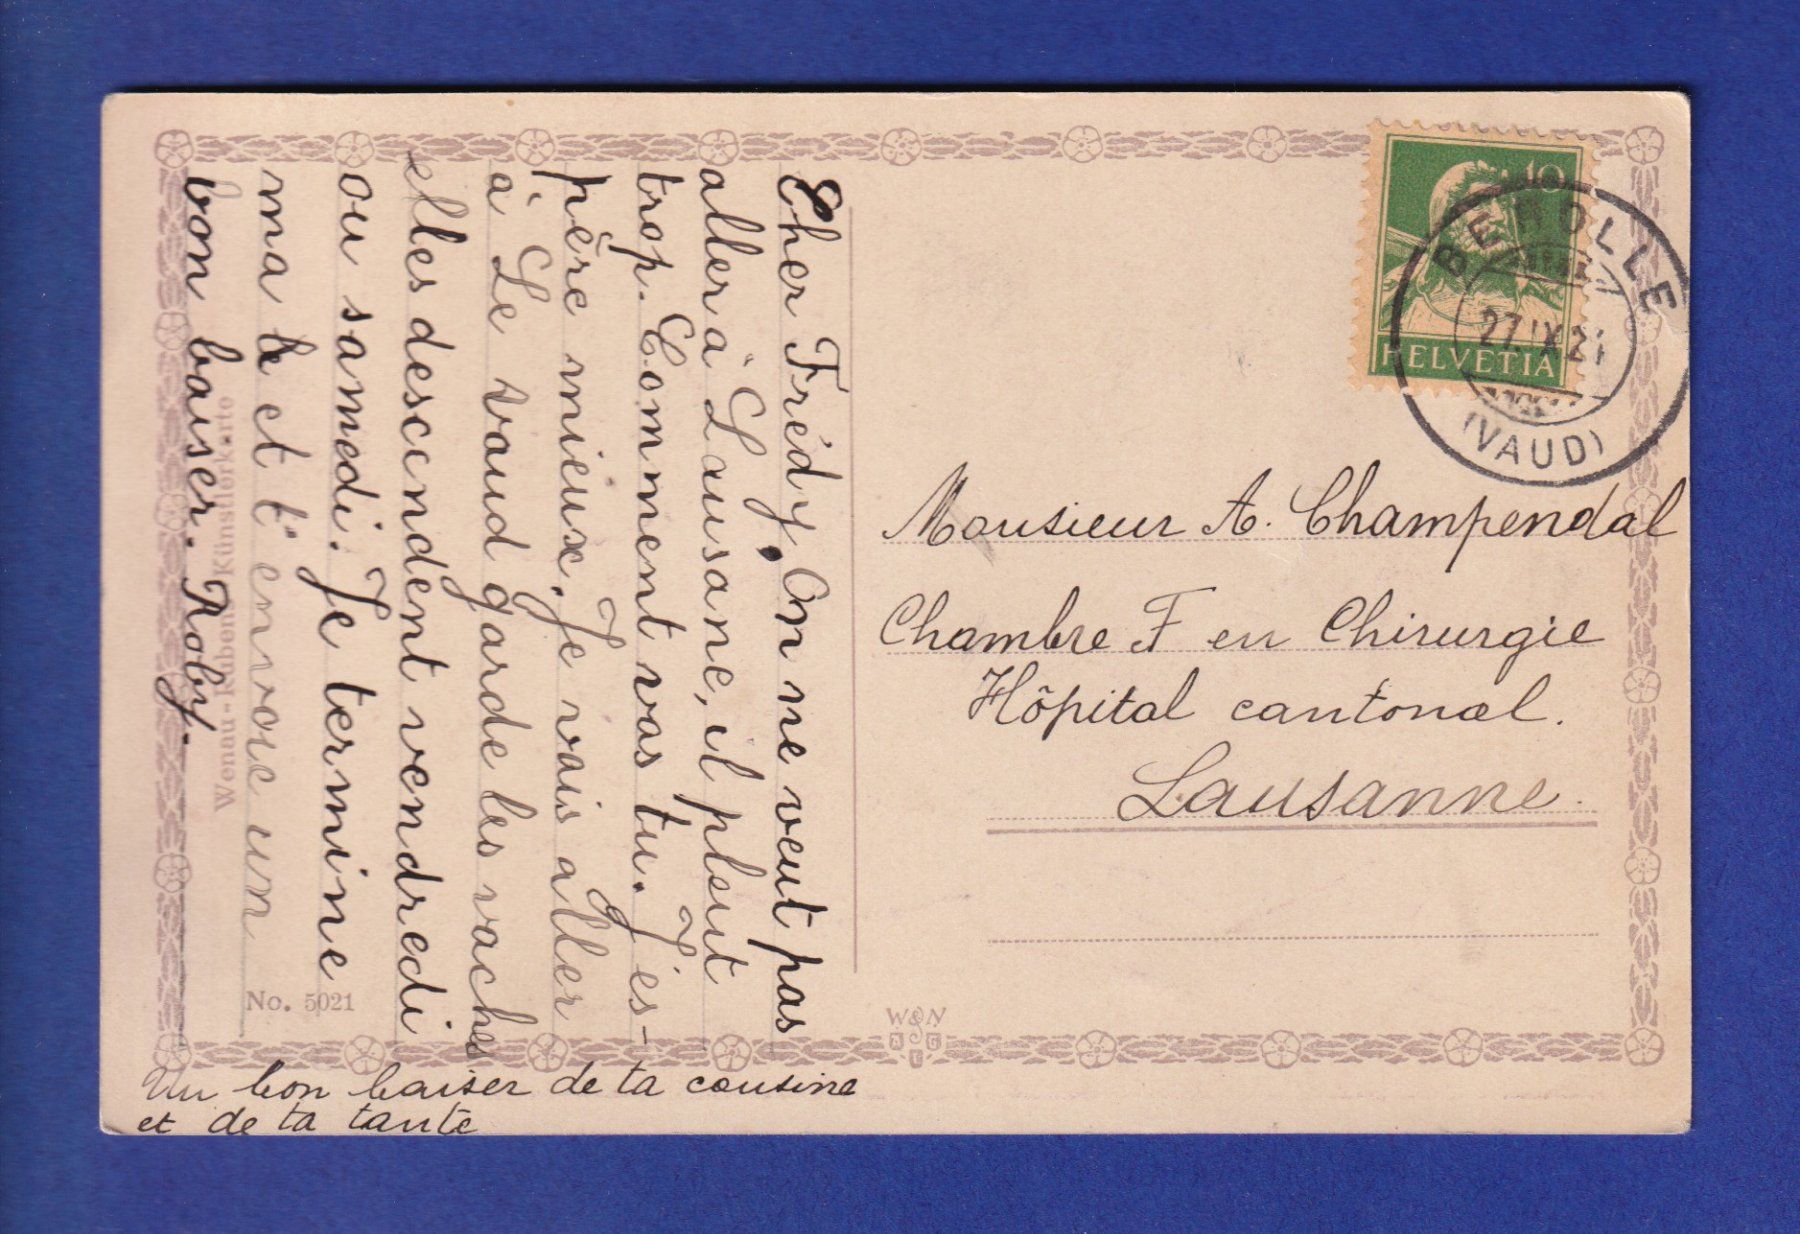 Cher Frédy. On ne veut pas
aller à Lausane, il pleut
trop. Comment vas tu. J'es-
père mieux. Je vais aller
à Le vaud garde les vaches
elles descendent vendredi
ou samedi. Je termine
ma et t'envoie un
bon baiser. Roby.
Un bon baiser de ta cousine
et de ta tante
Wenau-Rubens-Künstlerkarte
No. 5021
W&N
10
HELVETIA
BEROLLE
27.IX.21
(VAUD)
Monsieur A. Champendal
Chambre F en Chirurgie
Hôpital cantonal.
Lausanne.